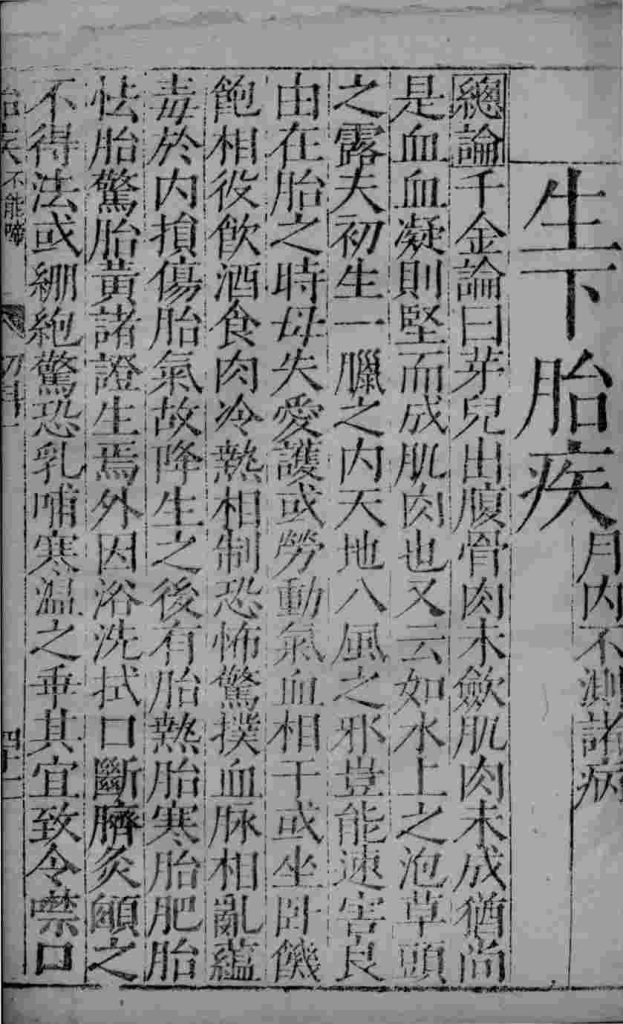 生下胎疾月內不測諸病
總論千金論曰芽兒出腹骨肉未斂肌肉未成猶尚
是血血凝則堅而成肌肉也又云如水上之泡草頭
之露夫初生一臘之内天地八風之邪豈能速害良
由在胎之時母失愛護或勞動氣血相干或坐卧饑
飽相役飲酒食肉冷熱相制恐怖驚撲血脉相亂蘊
毒於内損傷胎氣故降生之後有胎熱胎寒胎肥胎
怯胎驚胎黃諸證生焉外因浴洗拭口斷臍灸顖之
不得法或綳絁驚恐乳哺寒温之乖其宜致令噤口
胎疾不能啼 幼科一 四十一